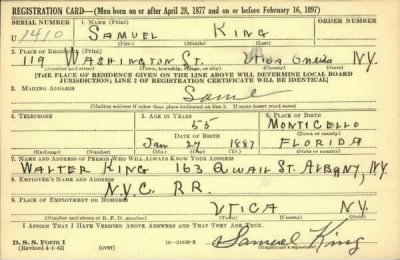 REGISTRATION CARD—(Men born on or after April 28, 1877 and on or before February 16, 1897)
SERIAL NUMBER 1. NAME (Print) ORDER NUMBER
U 1410 SAMUEL KING
(First) (Middle) (Last)
2. PLACE OF RESIDENCE (Print)
119 WASHINGTON ST. UTICA Oneida N.Y.
(Number and street) (Town, township, village, or city) (County) (State)
[THE PLACE OF RESIDENCE GIVEN ON THE LINE ABOVE WILL DETERMINE LOCAL BOARD
JURISDICTION; LINE 2 OF REGISTRATION CERTIFICATE WILL BE IDENTICAL]
3. MAILING ADDRESS
Same
[Mailing address if other than place indicated on line 2. If same insert word same]
4. TELEPHONE 5. AGE IN YEARS 6. PLACE OF BIRTH
55 MONTICELLO
DATE OF BIRTH (Town or county)
Jan 27 1887 FLORIDA
(Exchange) (Number) (Mo.) (Day) (Yr.) (State or country)
7. NAME AND ADDRESS OF PERSON WHO WILL ALWAYS KNOW YOUR ADDRESS
WALTER KING 163 QUAIL ST. ALBANY, N.Y.
8. EMPLOYER'S NAME AND ADDRESS
N.Y.C. RR.
9. PLACE OF EMPLOYMENT OR BUSINESS
UTICA N.Y.
(Number and street or R. F. D. number) (Town) (County) (State)
I AFFIRM THAT I HAVE VERIFIED ABOVE ANSWERS AND THAT THEY ARE TRUE.
D. S. S. Form 1
(Revised 4-1-42) (over) Samuel King